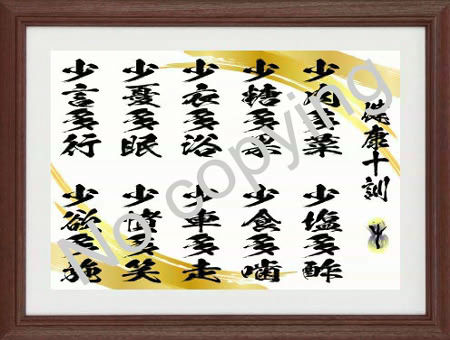 健康十訓
少肉多菜
少塩多酢
少糖多果
少食多噛
少衣多浴
少車多走
少憂多眠
少憤多笑
少言多行
少欲多施
No copying